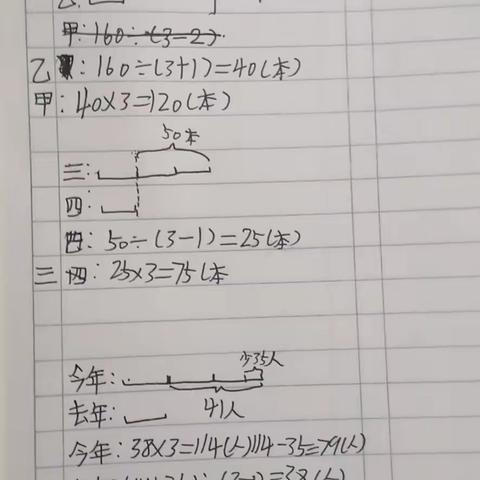 甲:160÷(3-2)
乙:160÷(3+1)=40(本)
甲:40×3=120(本)
50本
三:
四:
四:50÷(3-1)=25(本)
三:25×3=75(本
少35人
今年:
去年:
41人
今年:38×3=114(人)114-35=79(人)